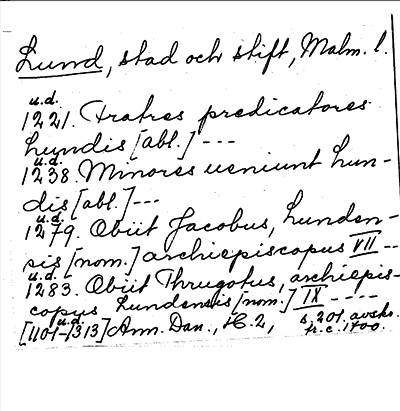 Lund, stad och stift, Malm. l.
u.d.
1221. Fratres predicatores
Lundis [abl.] ---
u.d.
1238. Minores ueniunt Lun-
dis [abl.] ---
u.d.
1279. Obiit Jacobus, Lunden-
sis [nom.] archiepiscopus VII --
u.d.
1283. Obiit Thrugotus, archiepis-
copus Lundensis [nom.] IX ----
u.d.
[1101-1313] Ann. Dan., H. 2, s. 201. avskr.
fr. c. 1400.